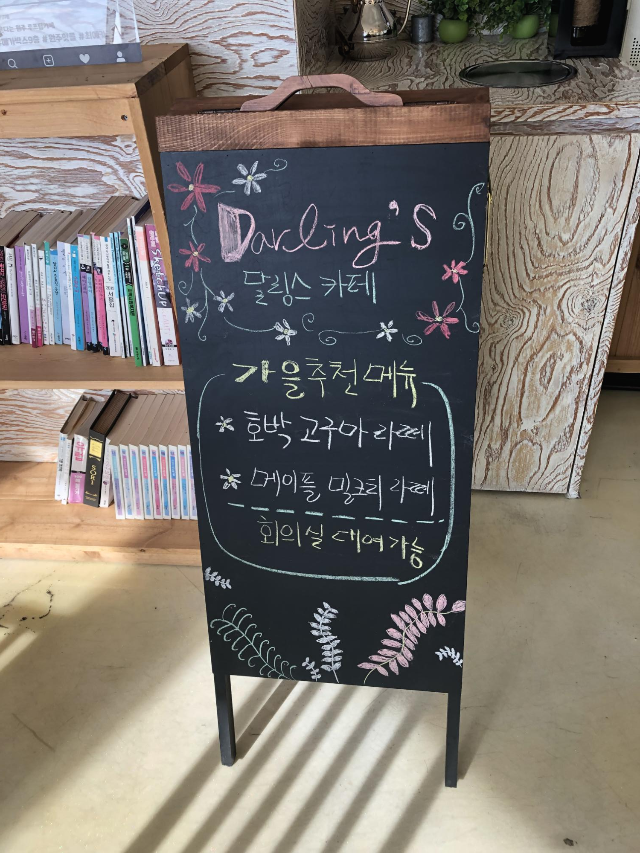 Darling's
달링스 카페
가을추천 메뉴
호박 고구마 라떼
메이플 밀크티 라떼
회의실 대여가능
SKETCHUP
SOKI